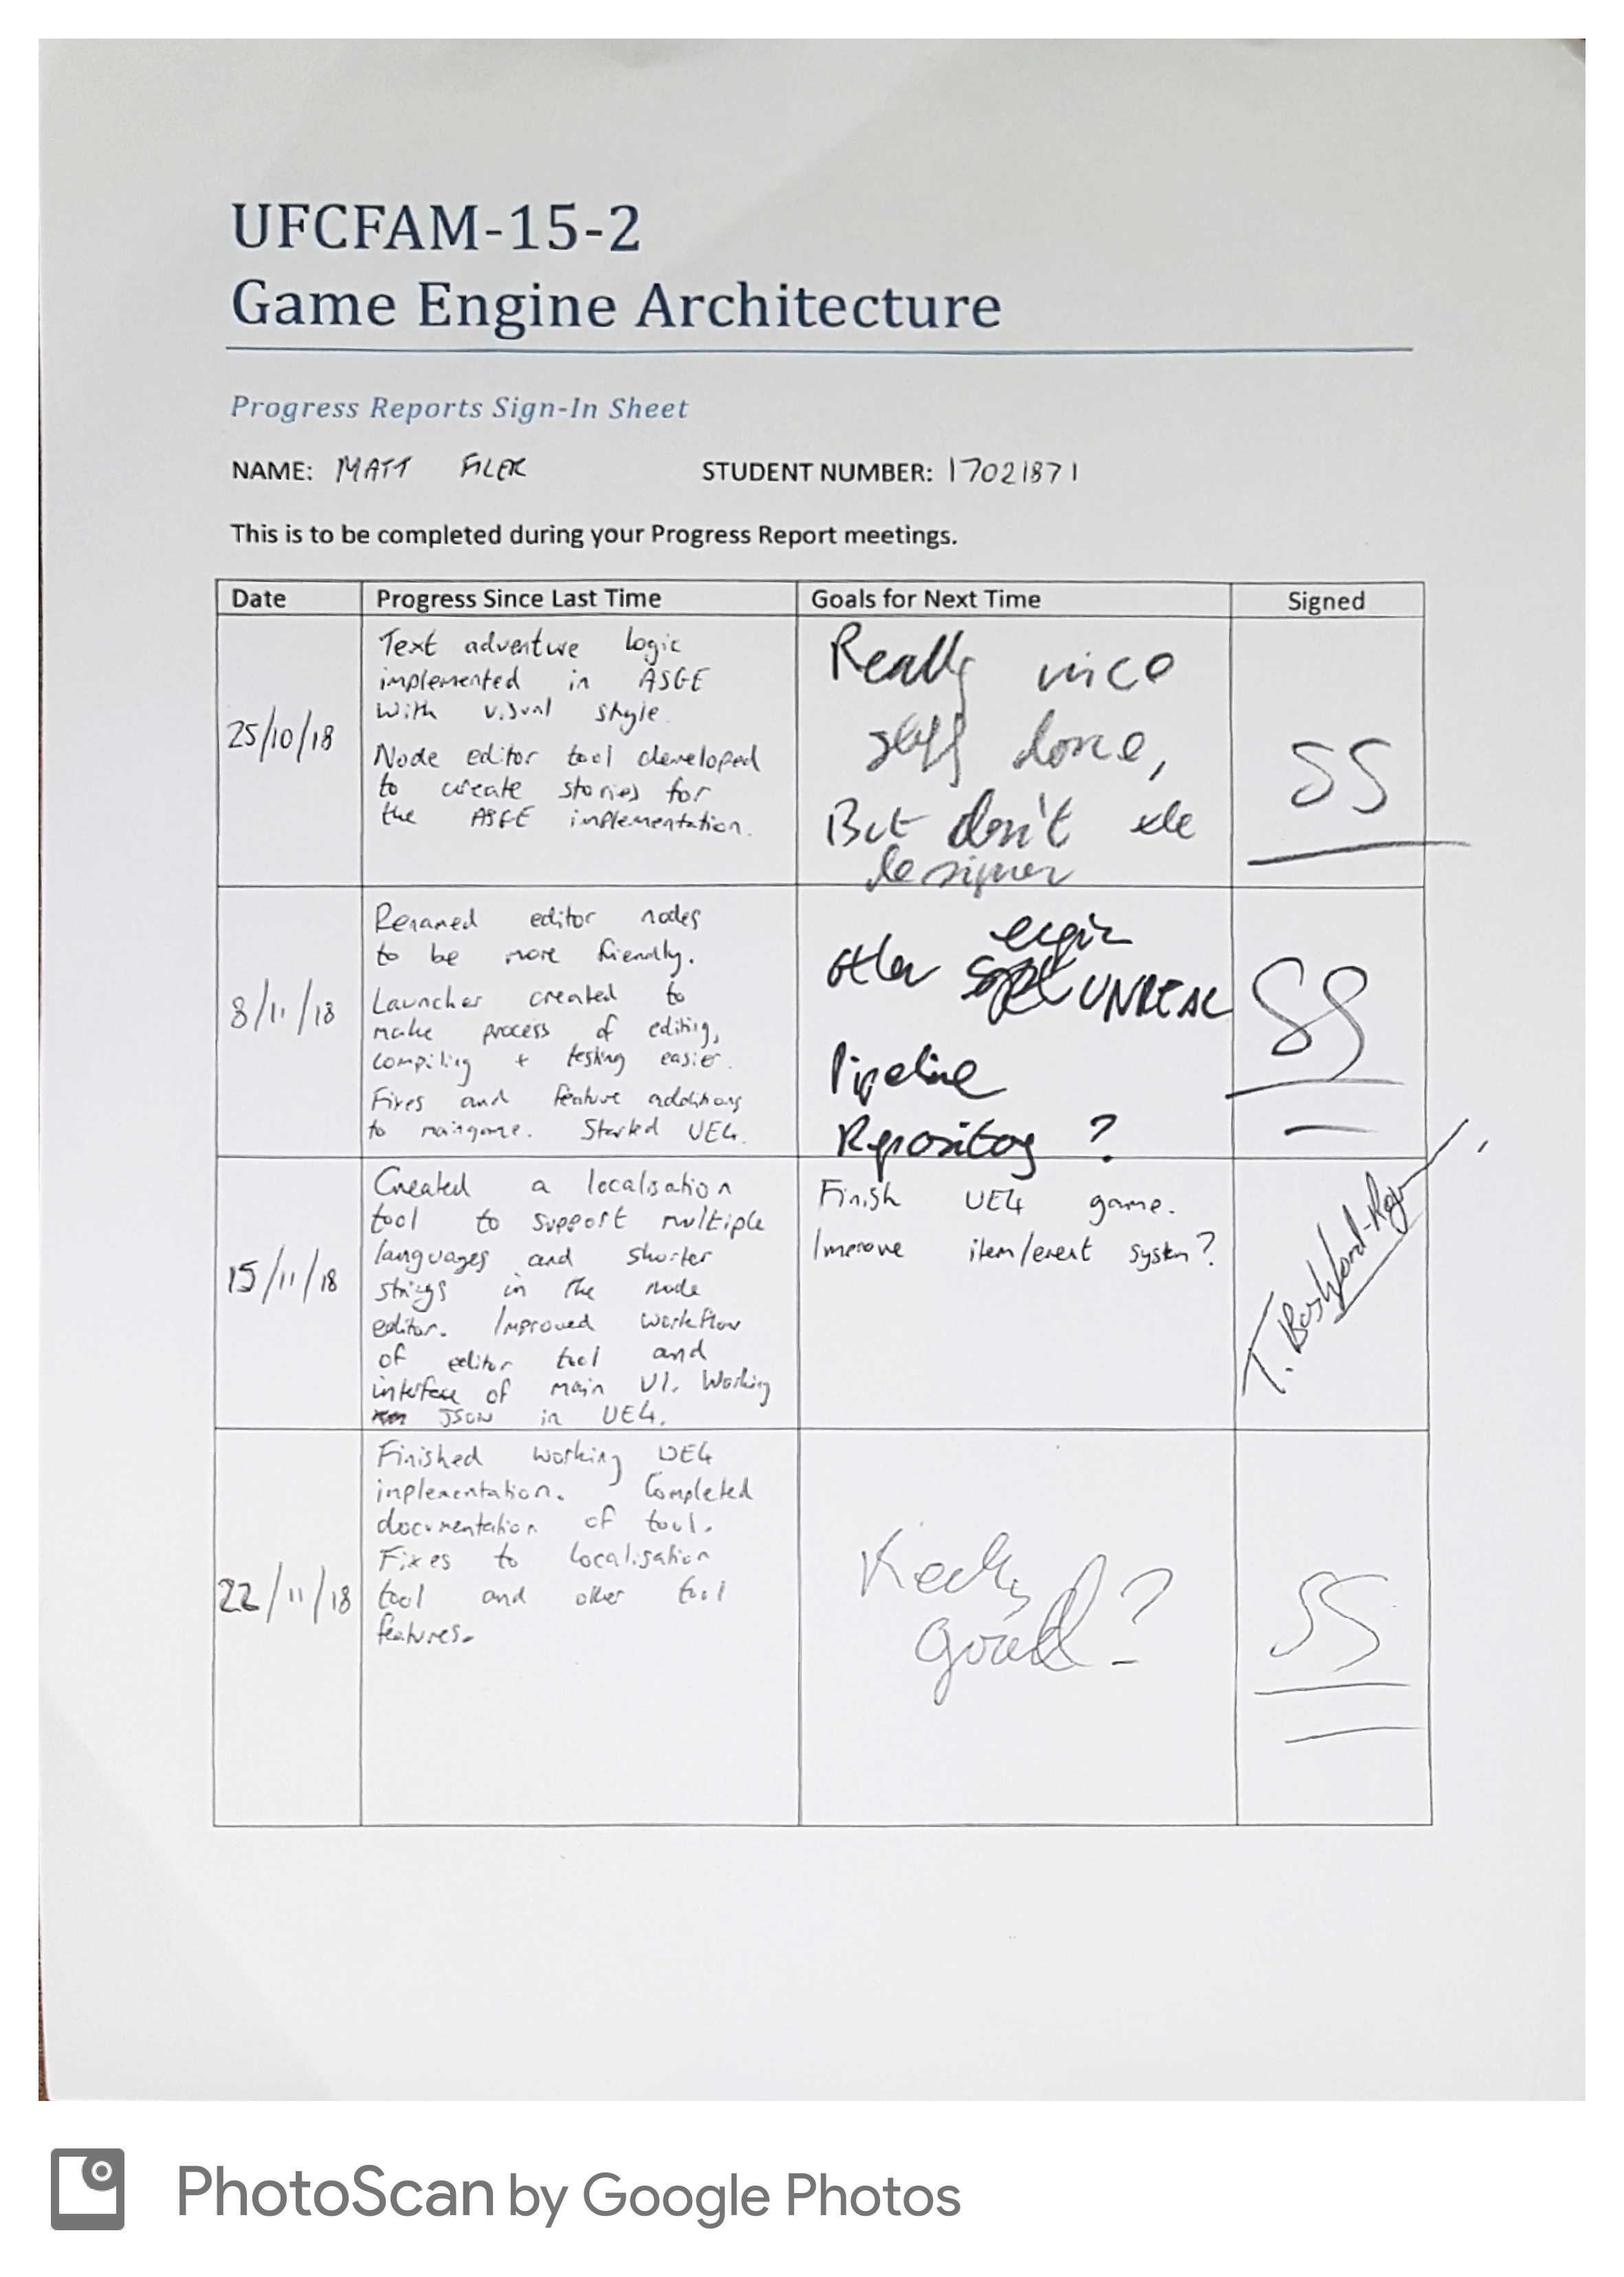 UFCFAM-15-2
Game Engine Architecture
Progress Reports Sign-In Sheet
NAME: MATT FILER STUDENT NUMBER: 17021871
This is to be completed during your Progress Report meetings.
Date Progress Since Last Time Goals for Next Time Signed
25/10/18
Text adventure logic
implemented in ASGE
with visual style
Node editor tool developed
to create stories for
the ASGE implementation.
Really nice
stuff done,
But don't
designer
SS
8/11/18
Renamed editor nodes
to be more friendly.
Launcher created to
make process of editing,
compiling + testing easier.
Fixes and feature additions
to maingame. Started UE4.
other engin
UNREAL
Pipeline
Repository ?
SS
15/11/18
Created a localisation
tool to support multiple
languages and shorter
strings in the node
editor. Improved workflow
of editor tool and
interface of main UI. Working
JSON in UE4.
Finish UE4 game.
Improve item/event system?
T.
22/11/18
Finished working UE4
implementation. Completed
documentation of tool.
Fixes to localisation
tool and other tool
features.
Really
good
SS
PhotoScan by Google Photos